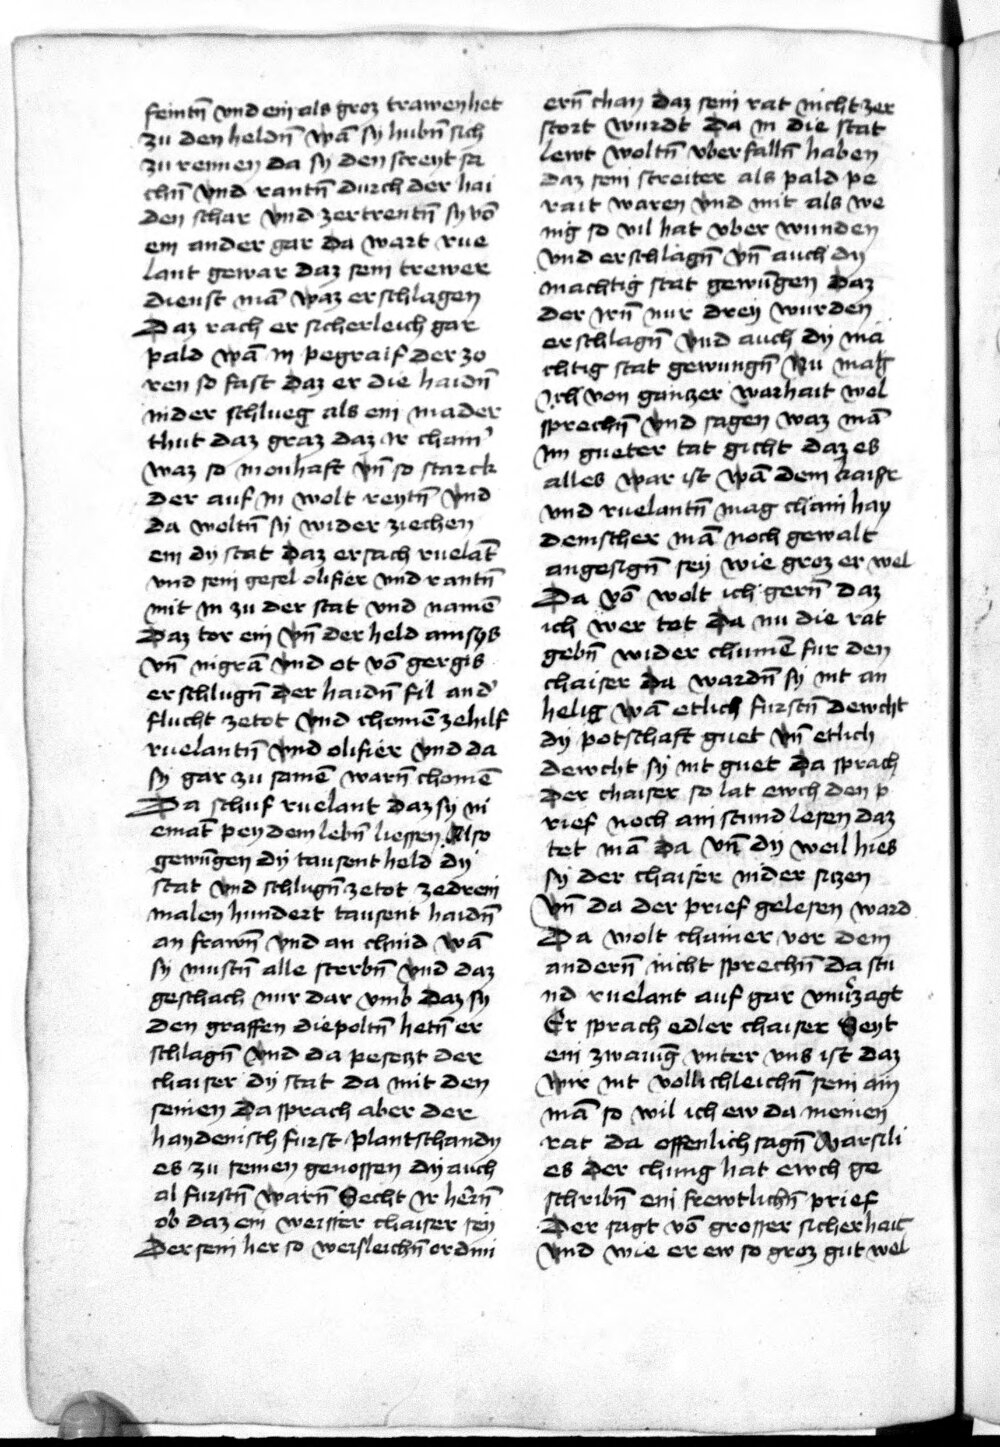 feintn̄ vnd ein als groz trawen het
zu den heldn̄ wā sy hubn̄ sich
zu rennen da sy den streyt sa
chn̄ vnd rantn̄ durch der hai
den schar vnd zertrentn̄ sy vō
ein ander gar Da wart rue
lant gewar daz sein trewer
dienst man̄ waz erschlagen
Daz rach er sicherleich gar
pald wā in pegraif der zo
ren so fast daz er die haidn̄
nider schlueg als ein mader
thut daz graz daz ir chain'
waz so monhaft vn̄ so starck
der auf in wolt reytn̄ vnd
da woltn̄ sy wider ziechen
ein dy stat Daz ersach ruelāt
vnd sein gesel olifier vnd rantn̄
mit in zu der stat vnd namē
Daz tor ein vn̄ der held amsys
vn̄ nigrā vnd ot vō gergis
erschlugn̄ der haidn̄ fil an d'
flucht zetot vnd chomē zehilf
ruelantn̄ vnd olifier vnd da
sy gar zu samē warn̄ chomē
Da schuf ruelant daz sy ni
emāt pey dem lebn̄ liessen Also
gewūgen dy tausent held dy
stat vnd schlugn̄ zetot zedrein
malen hundert tausent haidn̄
an frawn̄ vnd an chind wā
sy mustn̄ alle sterbn̄ vnd daz
geschach nur dar vmb daz sy
den graffen diepoltn̄ hetn̄ er
schlagn̄ vnd da pesetzt der
chaiser dy stat da mit den
seinen Da sprach aber der
haydenisch furst plantschandy
es zu seinen genossen dy auch
al furstn̄ warn̄ Secht ir hern̄
ob daz ein weisser chaiser sey
Der sein her so weisleichn̄ ordini
ern̄ chan daz sein rat nicht zer
stort wurdt Da in die stat
lewt woltn̄ vberfalln̄ haben
daz sein streiter als pald pe
rait waren vnd mit als we
nig so vil hat vber wunden
vnd erschlagn̄ vn̄ auch dy
machtig stat gewūgen daz
der irn̄ nur drey wurden
erschlagn̄ vnd auch dy mā
chtig stat gewungn̄ Nu mag
ich von gantzer warhait wol
sprechn̄ vnd sagen waz mā
im gueter tat gicht daz es
alles war ist wā dem kaiser
vnd ruelantn̄ mag chain hay
denischer mā noch gewalt
angesign̄ sey wie groz er wel
Da vō wolt ich gern̄ daz
ich wer tot Da nu die rat
gebn̄ wider chumē fur den
chaiser Da wardn̄ sy nit an
helig wā etlich furstn̄ dewcht
dy potschaft guet vn̄ etlich
dewcht sy nit guet Da sprach
der chaiser so lat ewch den p
rief noch ain stund lesen daz
tet mā da vn̄ dy weil hies
sy der chaiser nider sizen
vn̄ da der prief gelesen ward
Da wolt chainer vor dem
andern̄ nicht sprechn̄ da stu
nd ruelant auf gar vnuerzagt
Er sprach edler chaiser Seyt
ein zwaiūg vnter vns ist daz
wir nit vollichleichn̄ sein ain
mā so wil ich ew da meinen
rat da offenlich sagn̄ Marsili
es der chunig hat ewch ge
schribn̄ ein frewtlichn̄ prief
Der sagt vō grosser sicherhait
vnd wie er ew so groz gut wel